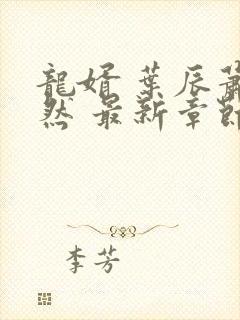 龍婿 葉辰蕭
然 最新章節
李芳